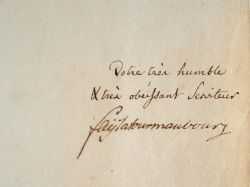 Votre très humble
& très obéissant Serviteur
faÿ latourmaubourg